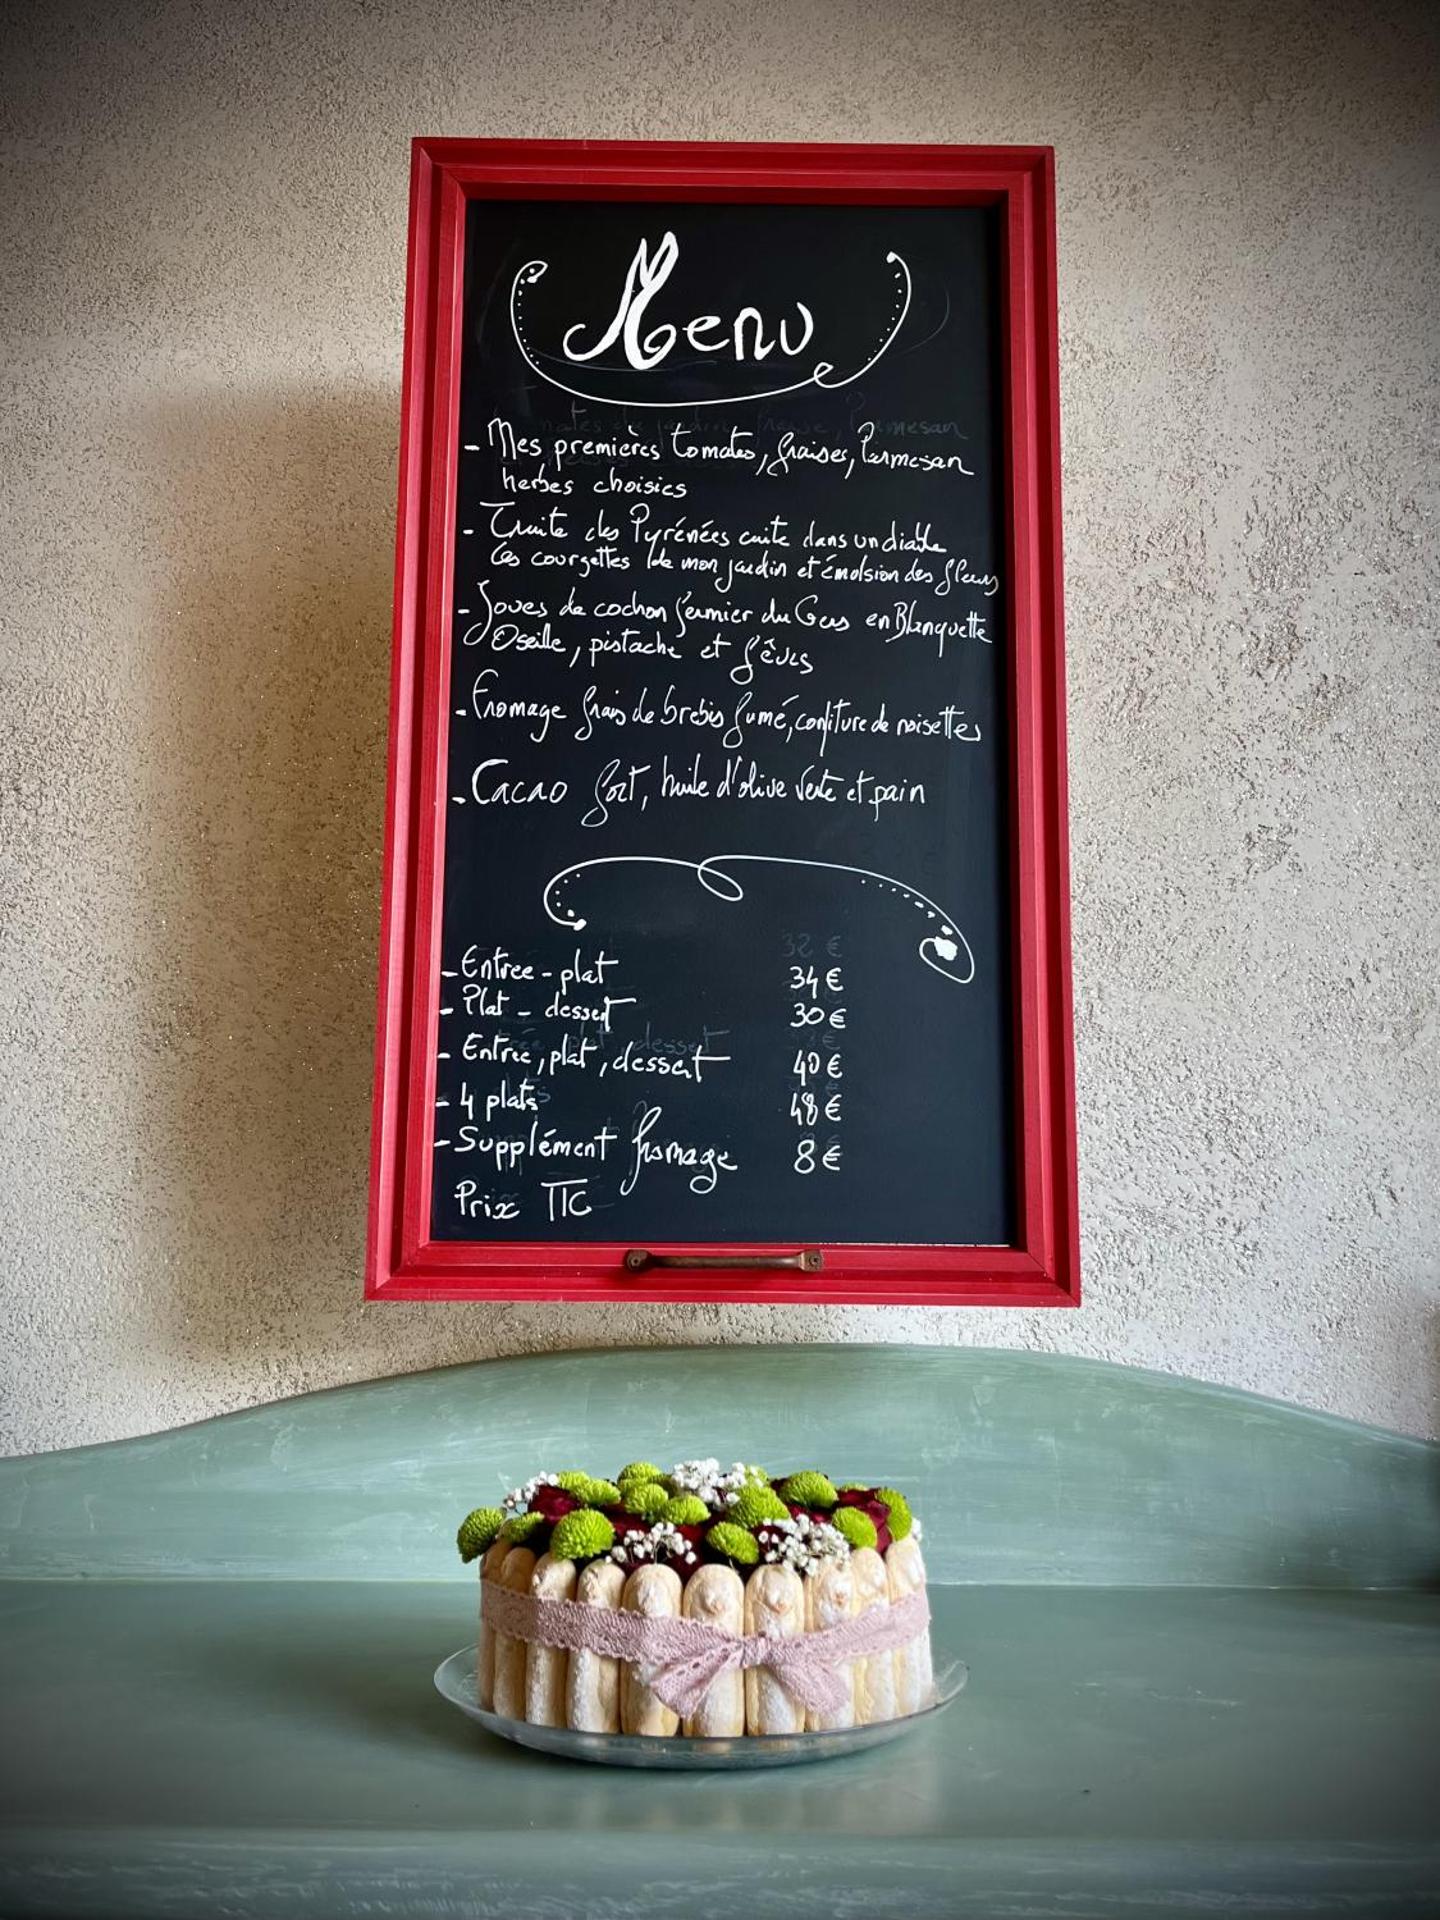 Menu
- Mes premières tomates, fraises, Parmesan
herbes choisies
- Truite des Pyrénées cuite dans un diable
Les courgettes de mon jardin et émulsion des fleurs
- Joues de cochon fermier du Gers en Blanquette
Oseille, pistache et fêves
- Fromage frais de brebis fumé, confiture de noisettes
- Cacao fort, huile d'olive verte et pain
- Entree - plat 34 €
- Plat - dessert 30 €
- Entree, plat, dessert 40 €
- 4 plats 48 €
- Supplément fromage 8 €
Prix TTC